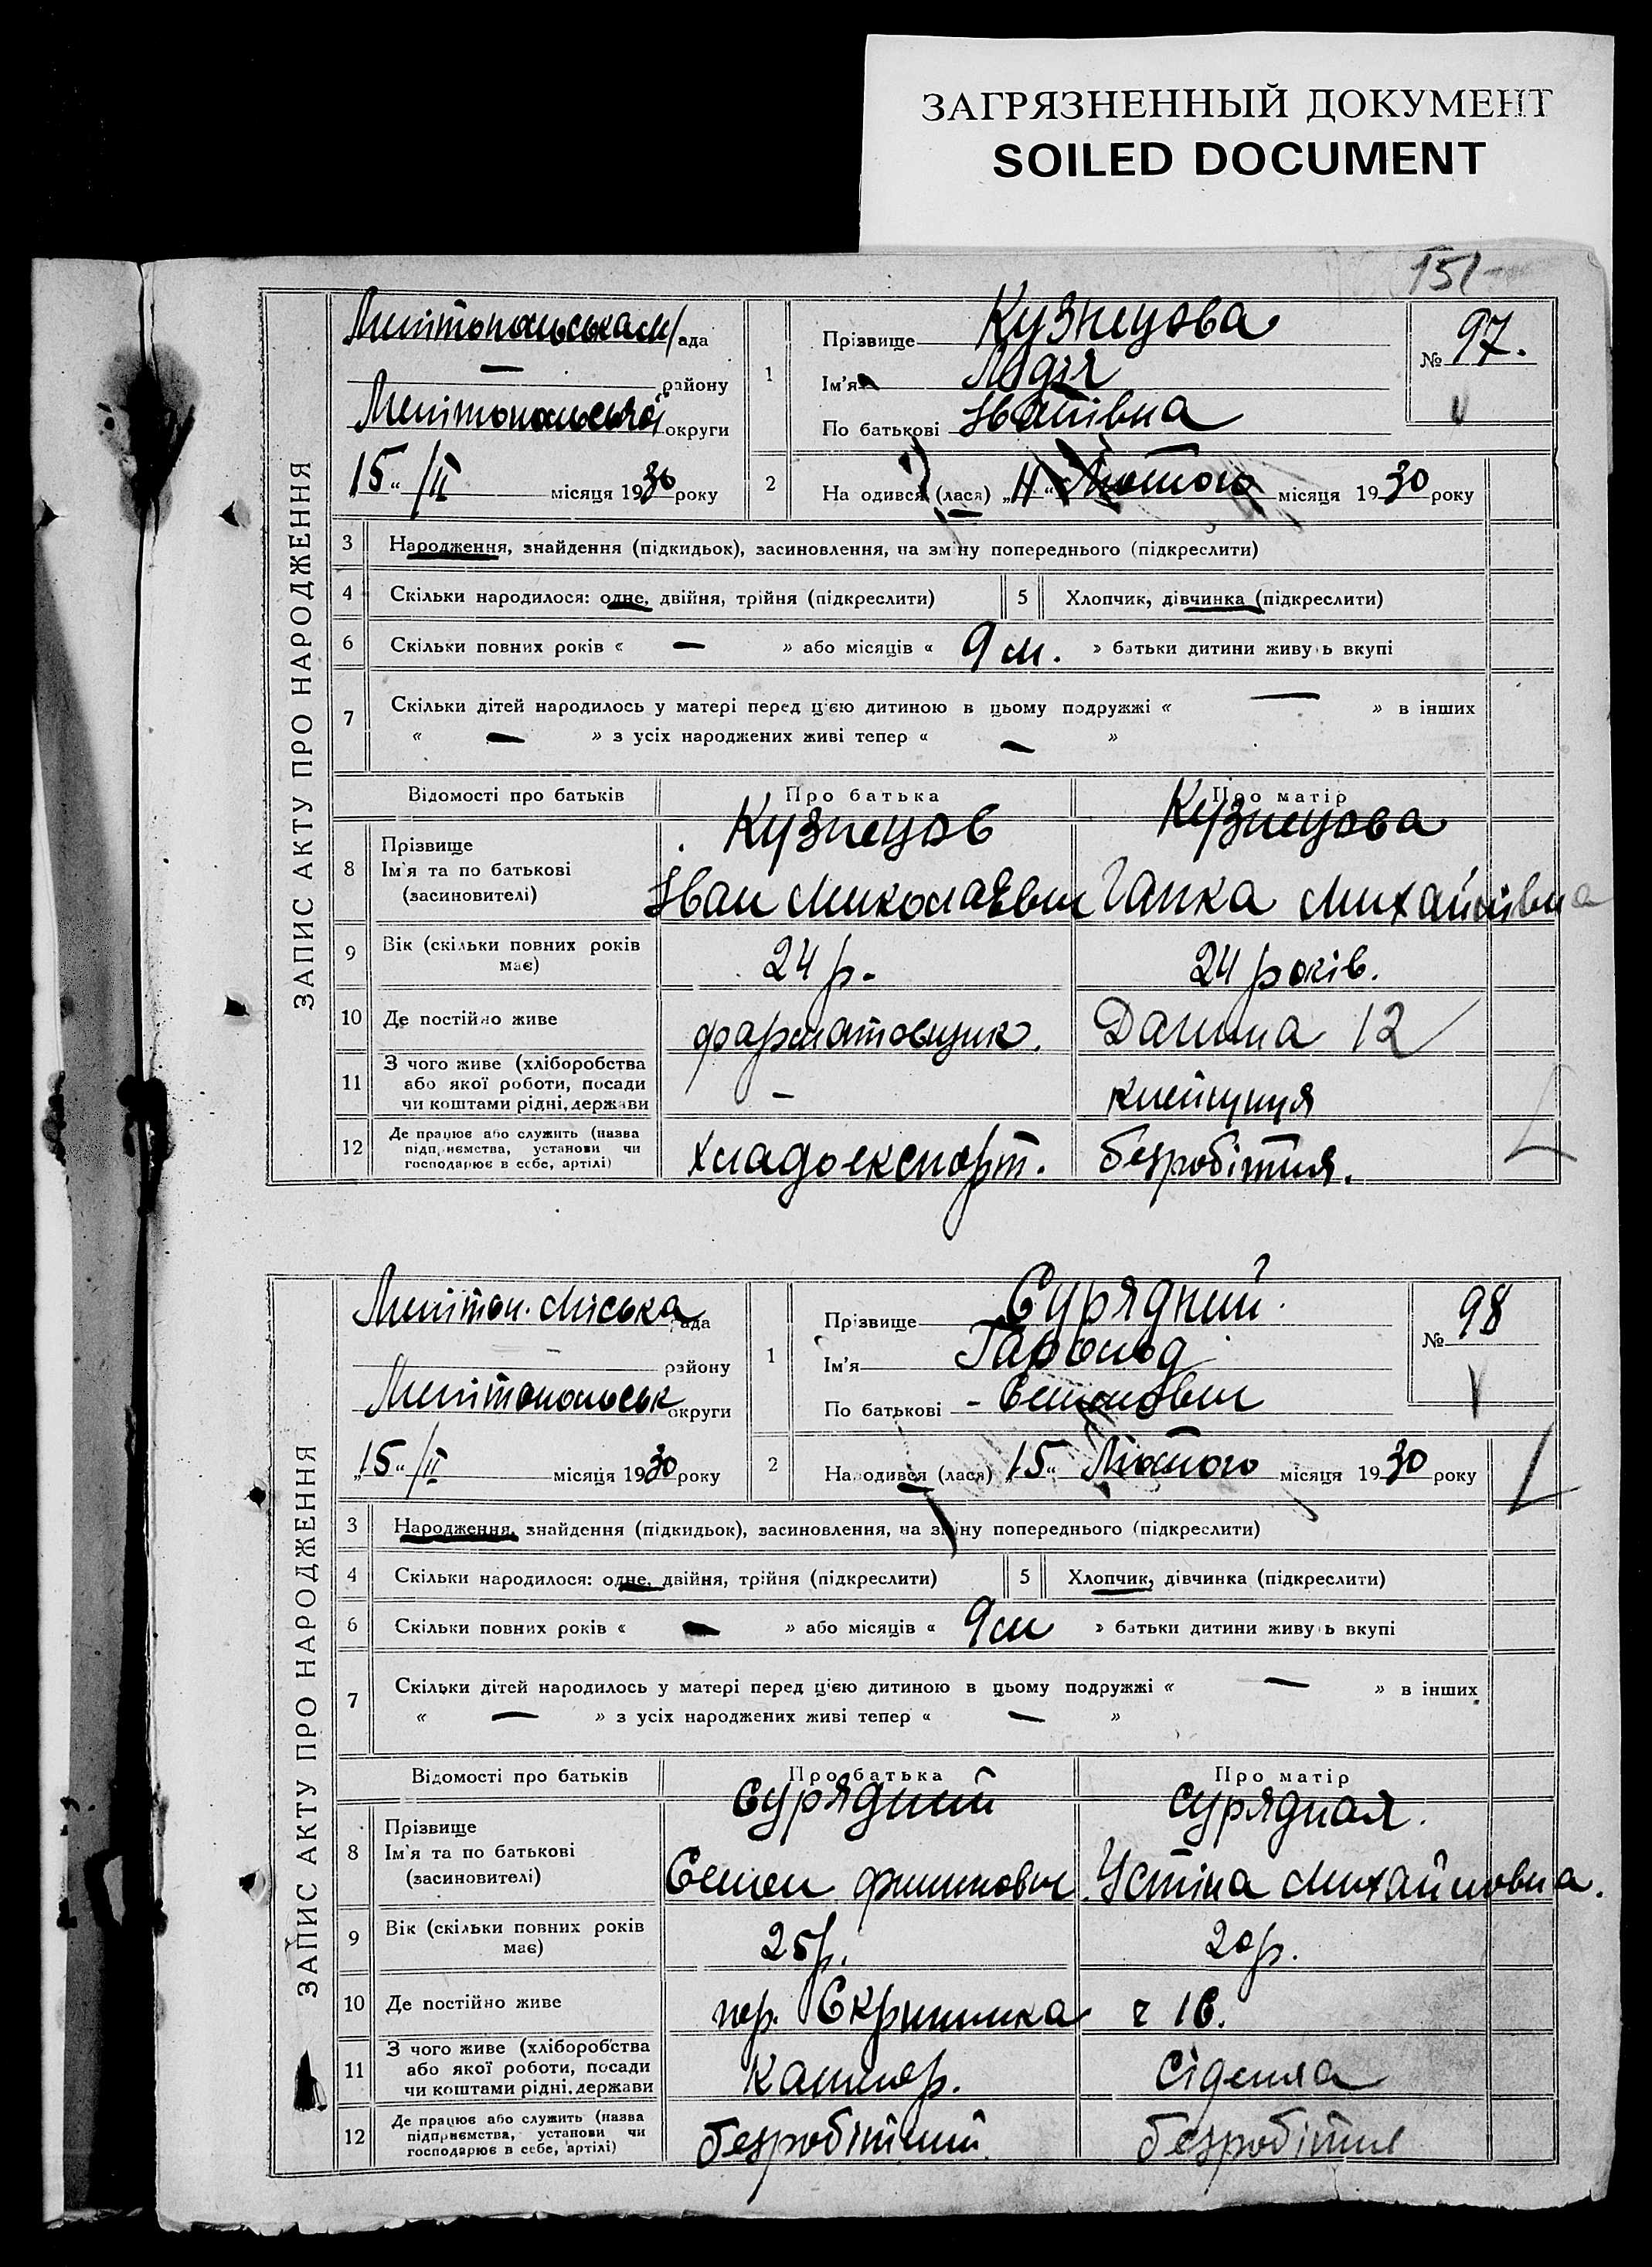 ЗАГРЯЗНЕННЫЙ ДОКУМЕНТ
SOILED DOCUMENT
151
ЗАПИС АКТУ ПРО НАРОДЖЕННЯ
Мелітопольська м/рада
— району
Мелітопольської округи
15 "/II місяця 1930 року
1
Прізвище Кузнецова
Ім'я Лідія
По батькові Іванівна
№ 97.
2
На одився (лася) „11" Лютого місяця 1930 року
3 Народження, знайдення (підкидьок), засиновлення, на зміну попереднього (підкреслити)
4 Скільки народилося: одне, двійня, трійня (підкреслити)
5 Хлопчик, дівчинка (підкреслити)
6 Скільки повних років « — » або місяців « 9 м. » батьки дитини живуть вкупі
7 Скільки дітей народилось у матері перед цією дитиною в цьому подружжі « — » в інших
« — » з усіх народжених живі тепер « — »
Відомості про батьків Про батька Про матір
8 Прізвище Кузнецов Кузнецова
Ім'я та по батькові
(засиновителі) Іван Миколаєвич Гапка Михайлівна
9 Вік (скільки повних років має) 24 р. 24 років.
10 Де постійно живе 12
11 З чого живе (хліборобства
або якої роботи, посади
чи коштами рідні, держави —
12 Де працює або служить (назва
підприємства, установи чи
господарює в себе, артілі) безробітня.
ЗАПИС АКТУ ПРО НАРОДЖЕННЯ
Мелітоп. Міська рада
— району
Мелітопольськ округи
„15"/II місяця 1930 року
1
Прізвище Сурядний
Ім'я Гарольд
По батькові - Семенович
№ 98
2
Народився (лася) 15" Лютого місяця 1930 року
3 Народження, знайдення (підкидьок), засиновлення, на зміну попереднього (підкреслити)
4 Скільки народилося: одне, двійня, трійня (підкреслити)
5 Хлопчик, дівчинка (підкреслити)
6 Скільки повних років « — » або місяців « 9 м » батьки дитини живуть вкупі
7 Скільки дітей народилось у матері перед цією дитиною в цьому подружжі « — » в інших
« — » з усіх народжених живі тепер « — »
Відомості про батьків Про батька Про матір
8 Прізвище Сурядний Сурядная.
Ім'я та по батькові
(засиновителі) Семен Устіна Михайловна.
9 Вік (скільки повних років має) 25 р. 20 р.
10 Де постійно живе пер. Скрипника
11 З чого живе (хліборобства
або якої роботи, посади
чи коштами рідні, держави
12 Де працює або служить (назва
підприємства, установи чи
господарює в себе, артілі) безробітний. безробітня